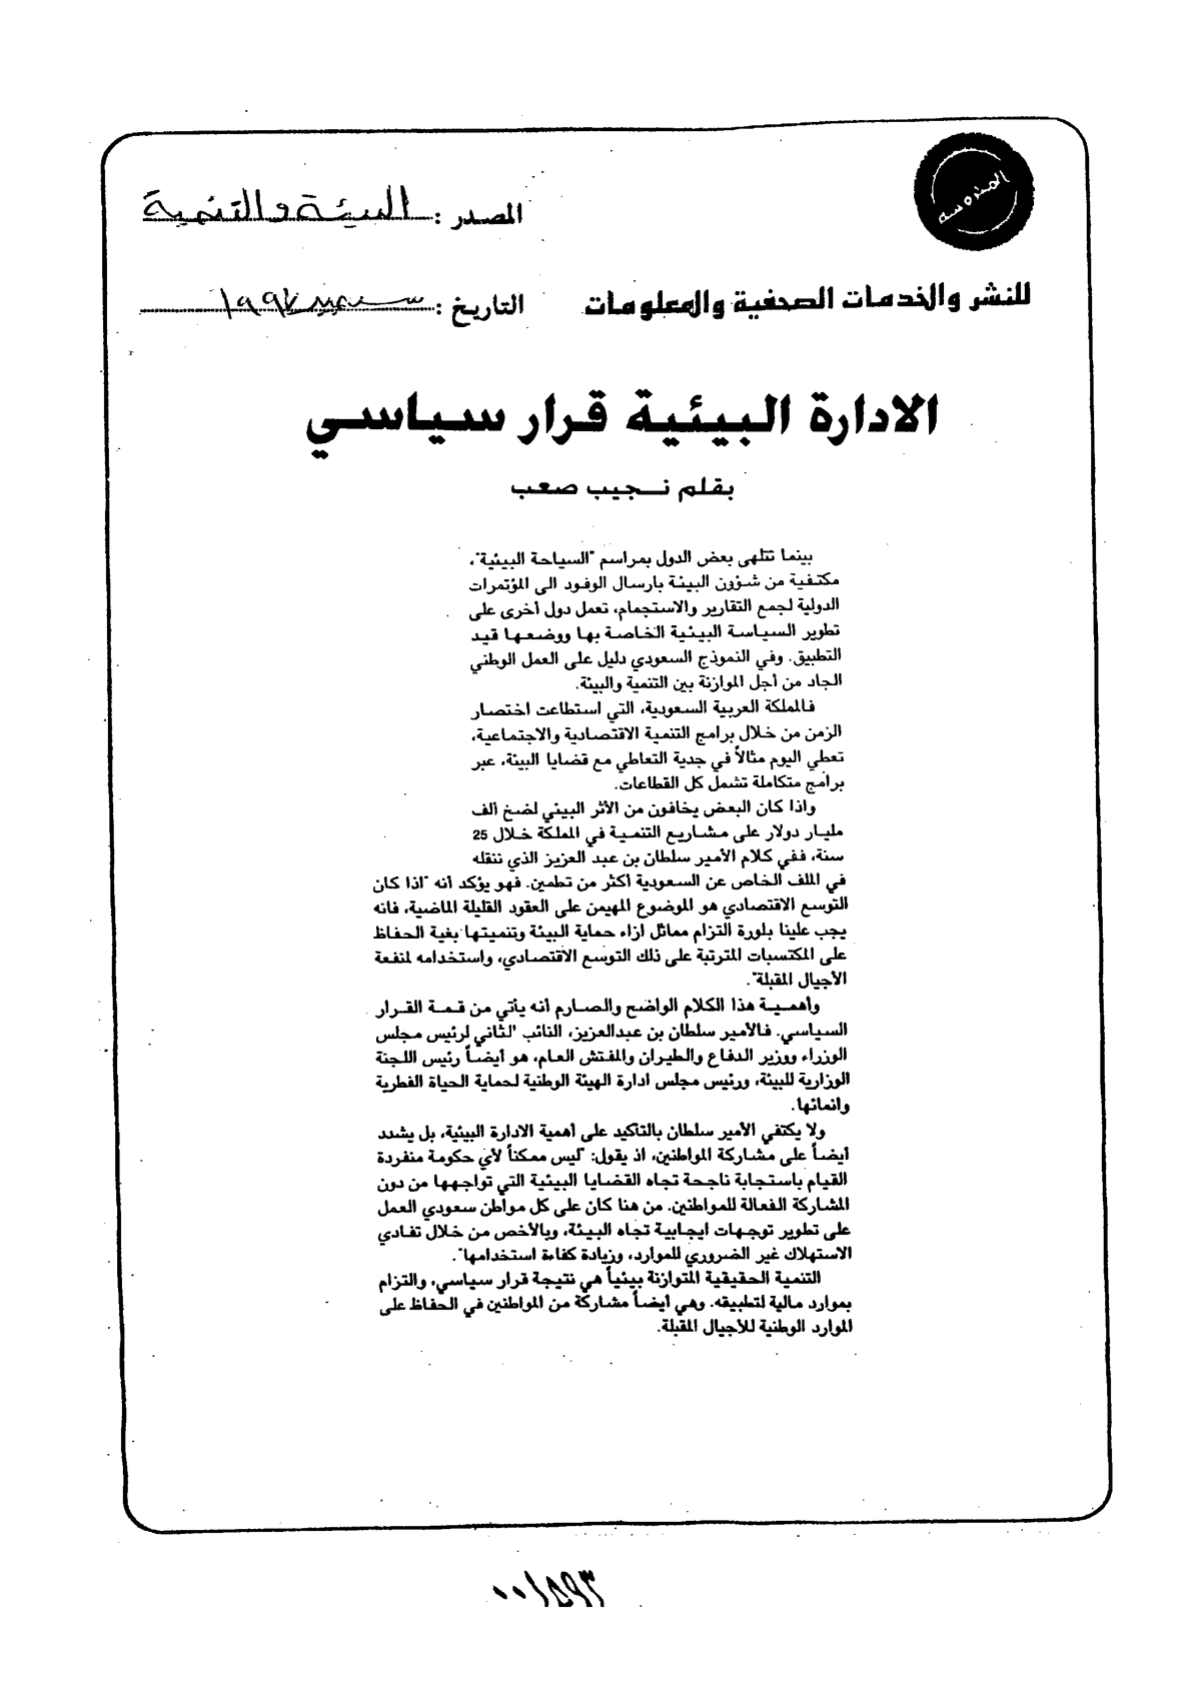 المصدر : البيئة والتنمية
للنشر والخدمات الصحفية والمعلومات
التاريخ : سبتمبر ١٩٩٧
الادارة البيئية قرار سياسي
بقلم نجيب صعب
بينما تتلهى بعض الدول بمراسم "السياحة البيئية"،
مكتفية من شؤون البيئة بارسال الوفود الى المؤتمرات
الدولية لجمع التقارير والاستجمام، تعمل دول أخرى على
تطوير السياسة البيئية الخاصة بها ووضعها قيد
التطبيق. وفي النموذج السعودي دليل على العمل الوطني
الجاد من أجل الموازنة بين التنمية والبيئة.
فالمملكة العربية السعودية، التي استطاعت اختصار
الزمن من خلال برامج التنمية الاقتصادية والاجتماعية،
تعطي اليوم مثالاً في جدية التعاطي مع قضايا البيئة، عبر
برامج متكاملة تشمل كل القطاعات.
واذا كان البعض يخافون من الأثر البيئي لضخ ألف
مليار دولار على مشاريع التنمية في المملكة خلال 25
سنة، ففي كلام الأمير سلطان بن عبد العزيز الذي ننقله
في الملف الخاص عن السعودية أكثر من تطمين. فهو يؤكد أنه "اذا كان
التوسع الاقتصادي هو الموضوع المهيمن على العقود القليلة الماضية، فانه
يجب علينا بلورة التزام مماثل ازاء حماية البيئة وتنميتها بغية الحفاظ
على المكتسبات المترتبة على ذلك التوسع الاقتصادي، واستخدامه لمنفعة
الأجيال المقبلة".
وأهمية هذا الكلام الواضح والصارم أنه يأتي من قمة القرار
السياسي. فالأمير سلطان بن عبدالعزيز، النائب الثاني لرئيس مجلس
الوزراء ووزير الدفاع والطيران والمفتش العام، هو أيضاً رئيس اللجنة
الوزارية للبيئة، ورئيس مجلس ادارة الهيئة الوطنية لحماية الحياة الفطرية
وانمائها.
ولا يكتفي الأمير سلطان بالتأكيد على أهمية الادارة البيئية، بل يشدد
أيضاً على مشاركة المواطنين، اذ يقول: "ليس ممكناً لأي حكومة منفردة
القيام باستجابة ناجحة تجاه القضايا البيئية التي تواجهها من دون
المشاركة الفعالة للمواطنين. من هنا كان على كل مواطن سعودي العمل
على تطوير توجهات ايجابية تجاه البيئة، وبالأخص من خلال تفادي
الاستهلاك غير الضروري للموارد، وزيادة كفاءة استخدامها".
التنمية الحقيقية المتوازنة بيئياً هي نتيجة قرار سياسي، والتزام
بموارد مالية لتطبيقه. وهي أيضاً مشاركة من المواطنين في الحفاظ على
الموارد الوطنية للأجيال المقبلة.
٠٠١٥٩٣